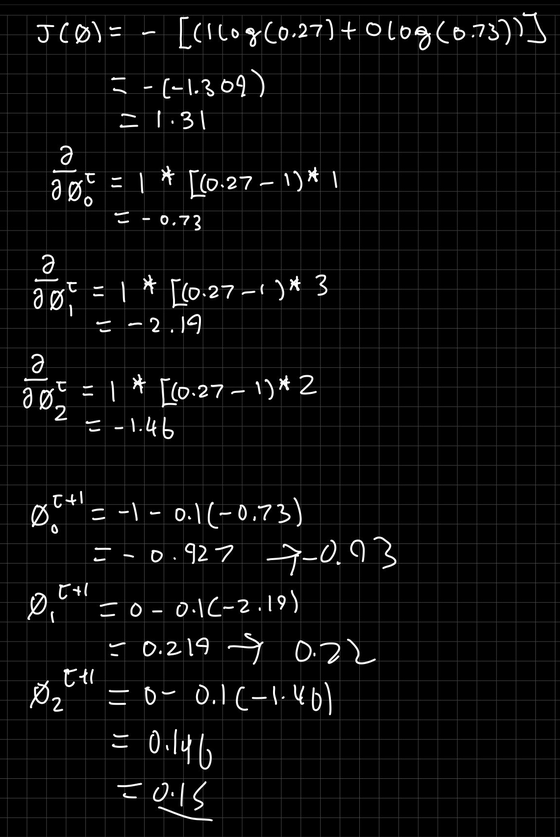 J(Ø) = - [(1log(0.27) + 0log(0.73))]
= -(-1.309)
= 1.31
∂/∂Ø₀^τ = 1 * [(0.27 - 1) * 1
= -0.73
∂/∂Ø₁^τ = 1 * [(0.27 - 1) * 3
= -2.19
∂/∂Ø₂^τ = 1 * [(0.27 - 1) * 2
= -1.46
Ø₀^τ+1 = -1 - 0.1(-0.73)
= -0.927 → -0.93
Ø₁^τ+1 = 0 - 0.1(-2.19)
= 0.219 → 0.22
Ø₂^τ+1 = 0 - 0.1(-1.46)
= 0.146
= 0.15